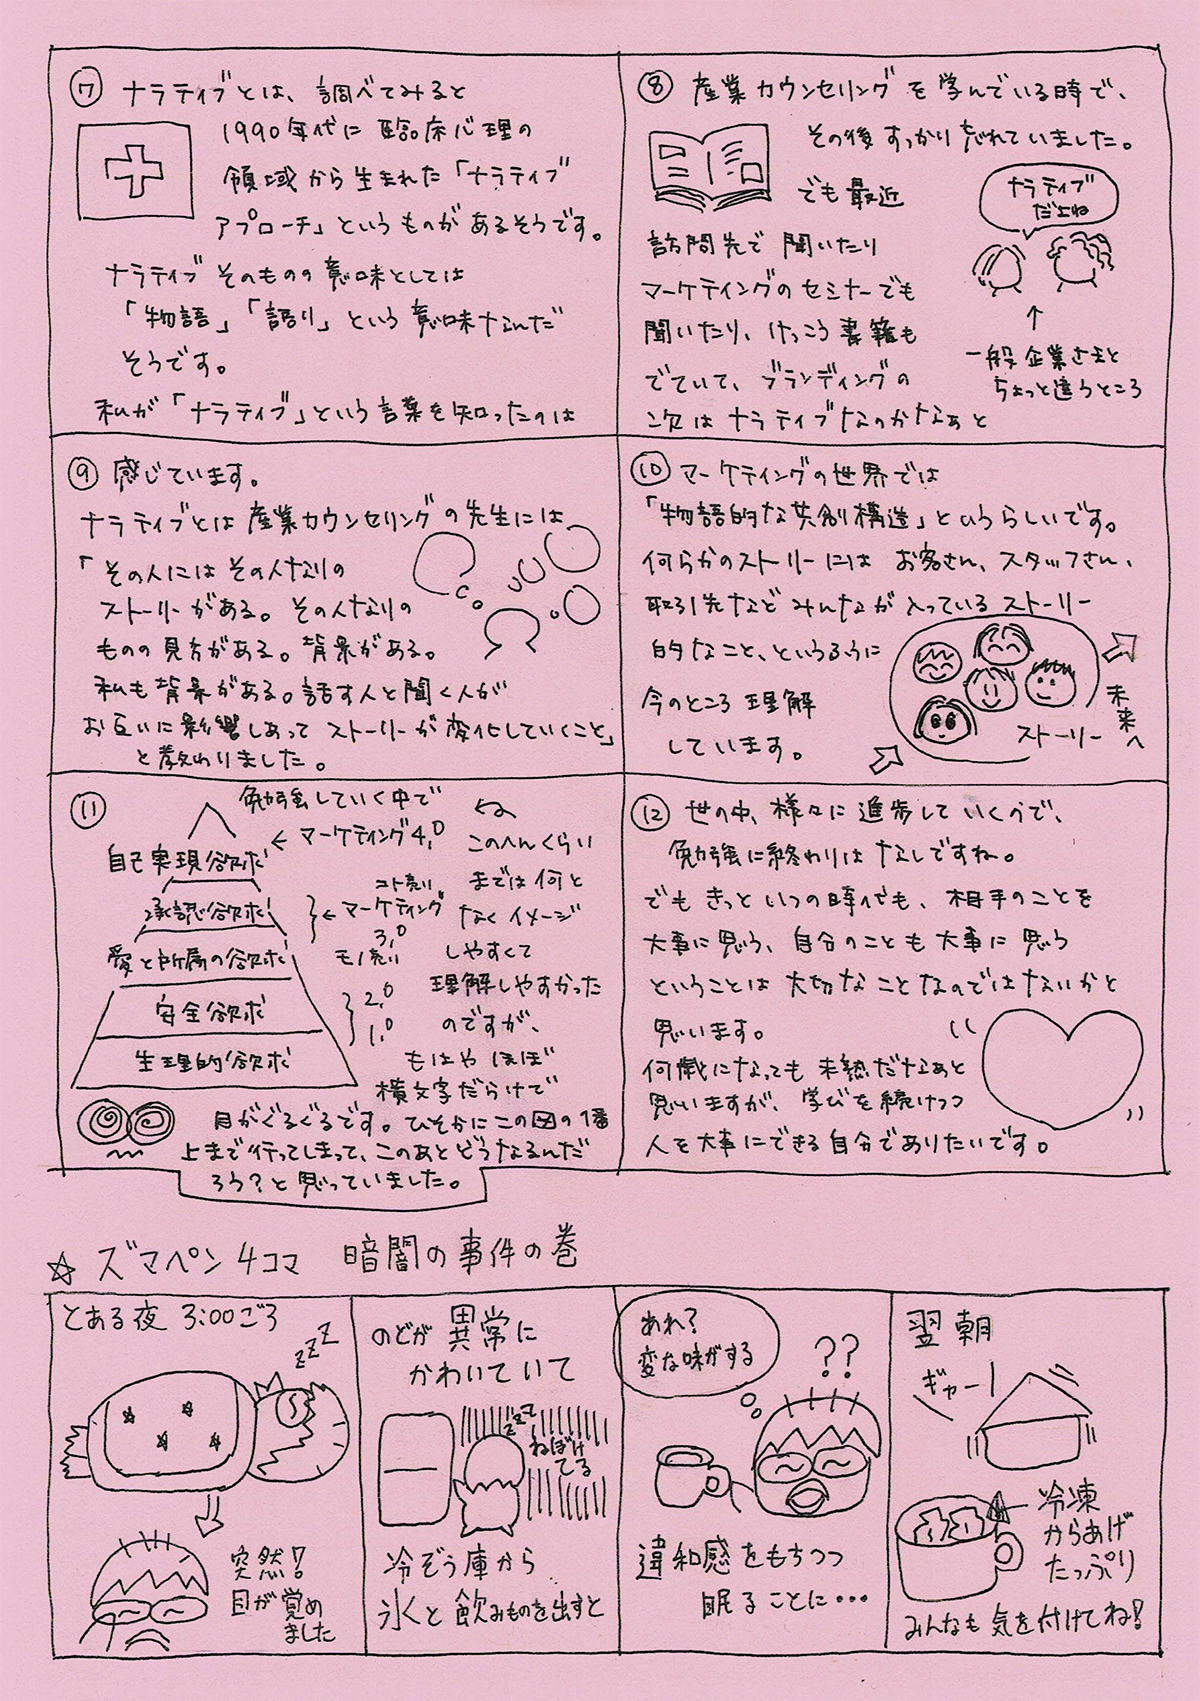 ⑦ ナラティブとは、調べてみると
1990年代に臨床心理の
領域から生まれた「ナラティブ
アプローチ」というものがあるそうです。
ナラティブそのものの意味としては
「物語」「語り」という意味なんだ
そうです。
私が「ナラティブ」という言葉を知ったのは
⑧ 産業カウンセリングを学んでいる時で、
その後すっかり忘れていました。
でも最近
訪問先で聞いたり
マーケティングのセミナーでも
聞いたり、けっこう書籍も
でていて、ブランディングの
次はナラティブなのかなぁと
ナラティブ
だよね
↑
一般企業さまと
ちょっと違うところ
⑨ 感じています。
ナラティブとは産業カウンセリングの先生には
「その人にはその人なりの
ストーリーがある。その人なりの
ものの見方がある。背景がある。
私も背景がある。話す人と聞く人が
お互いに影響しあってストーリーが変化していくこと」
と教わりました。
⑩ マーケティングの世界では
「物語的な共創構造」というらしいです。
何らかのストーリーにはお客さん、スタッフさん、
取引先などみんなが入っているストーリー
的なこと、というふうに
今のところ理解
しています。
ストーリー
未来へ
⑪ 勉強していく中で
自己実現欲求
承認欲求
愛と所属の欲求
安全欲求
生理的欲求
← マーケティング4.0
コト売り
← マーケティング
3.0
モノ売り
2.0
1.0
このへんくらい
までは何と
なくイメージ
しやすくて
理解しやすかった
のですが、
もはやほぼ
横文字だらけで
目がぐるぐるです。ひそかにこの図の1番
上まで行ってしまって、このあとどうなるんだ
ろう?と思っていました。
⑫ 世の中、様々に進歩していくので、
勉強に終わりはなしですね。
でもきっといつの時代も、相手のことを
大事に思う、自分のことも大事に思う
ということは大切なことなのではないかと
思います。
何歳になっても未熟だなぁと
思いますが、学びを続けつつ
人を大事にできる自分でありたいです。
☆ ズマペン4コマ 暗闇の事件の巻
とある夜 3:00ごろ
zzz
突然!
目が覚め
ました
のどが異常に
かわいていて
zzz
ねぼけ
てる
冷ぞう庫から
氷くと飲みものを出すと
あれ?
変な味がする
??
違和感をもちつつ
眠ることに…
翌朝
ギャー!
冷凍
からあげ
たっぷり
みんなも気を付けてね!